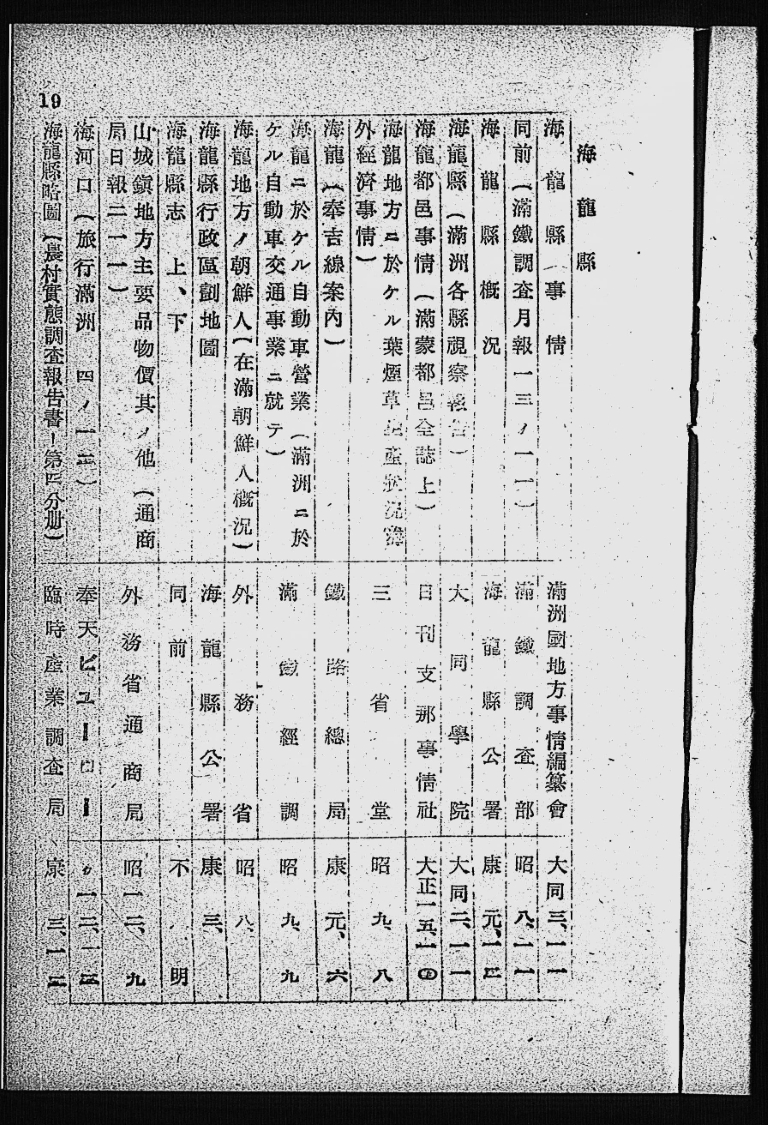 19
海龍縣
海龍縣事情 滿洲國地方事情編纂會 大同三、一一
同前（滿鐵調査月報一三ノ一一） 滿鐵調査部 昭八、一一
海龍縣槪況 海龍縣公署 康元、一二
海龍縣（滿洲各縣視察報告） 大同學院 大同二、一一
海龍都邑事情（滿蒙都邑全誌上） 日刊支那事情社 大正一五、一〇
海龍地方ニ於ケル葉煙草生產狀況
外經濟事情） 三省堂 昭九、八
海龍（奉吉線案內） 鐵路總局 康元、六
海龍ニ於ケル自動車營業（滿洲ニ於
ケル自動車交通事業ニ就テ） 滿鐵經調 昭九、九
海龍地方ノ朝鮮人（在滿朝鮮人槪況） 外務省 昭八、
海龍縣行政區劃地圖 海龍縣公署 康三、
海龍縣志 上、下 同前 不明
山城鎭地方主要品物價其ノ他（通商
局日報二一一） 外務省通商局 昭一二、九
梅河口（旅行滿洲 四ノ一二） 奉天ビユーロー 〃一二、一二
海龍縣略圖（農村實態調査報告書ー第四分册） 臨時產業調査局 康三、一二